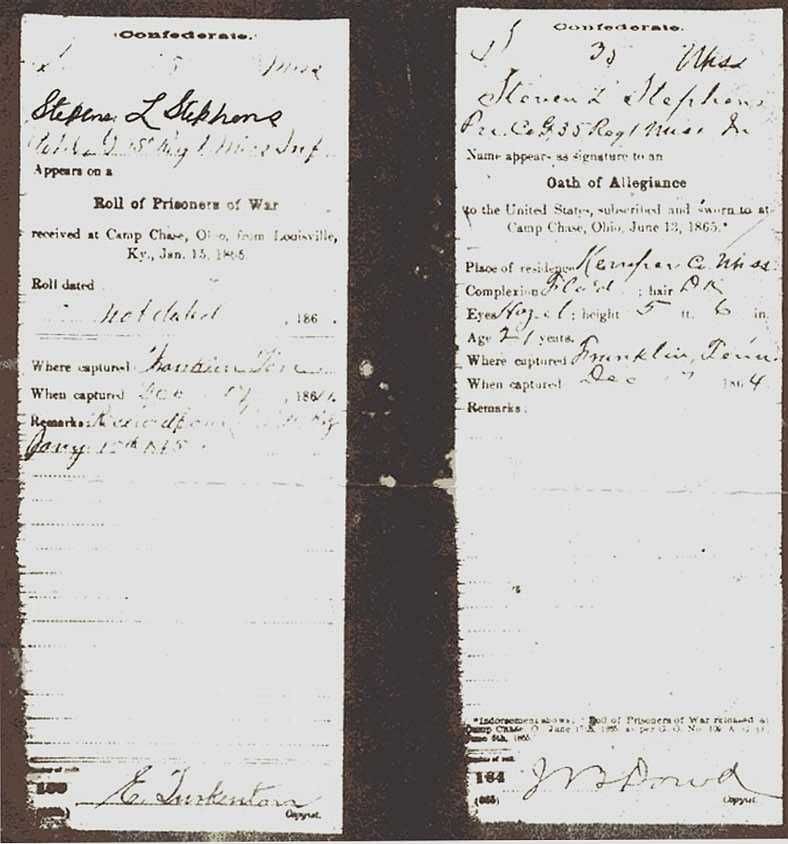 Confederate.
Miss
Stepens L Stephens
Reg't Miss Inf
Appears on a
Roll of Prisoners of War
received at Camp Chase, Ohio, from Louisville,
Ky., Jan. 15, 1865.
Roll dated
not dated , 186 .
Where captured
When captured Dec 17 , 1864.
Remarks:
Jany 15th
Number of roll:
E. Turkenton
Copyist.
Confederate.
S 35 Miss
Steven L Stephens
Pri. Co G 35 Regt Miss In
Name appears as signature to an
Oath of Allegiance
to the United States, subscribed and sworn to at
Camp Chase, Ohio, June 13, 1865.*
Place of residence Kemper Co Miss.
Complexion Flo'd ; hair DK
Eyes Haz-el ; height 5 ft. 6 in.
Age 21 years.
Where captured Franklin, Tenn.
When captured Dec 17 1864
Remarks:
*Indorsement shows: Roll of Prisoners of War released at
Camp Chase, O. June 1865 as per G. O. No. 109 A. G. O.
June 6th, 1865
Number of roll:
164
(665)
Copyist.